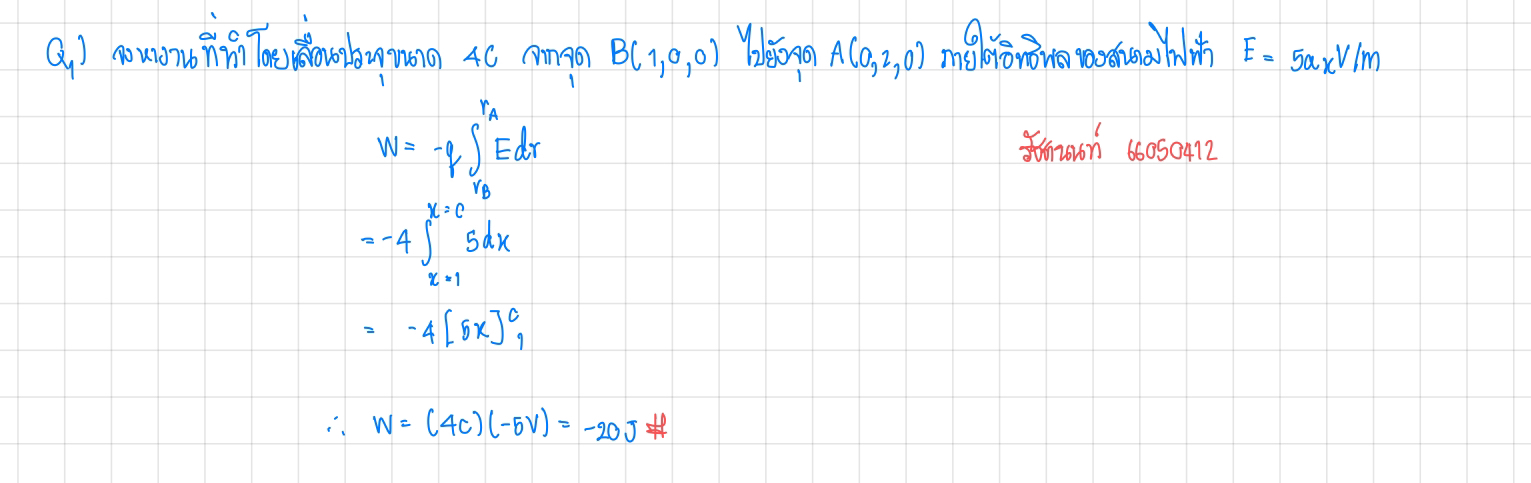 Q1) จงหางานที่ทำโดยเลื่อนประจุขนาด 4C จากจุด B(1,0,0) ไปยังจุด A(0,2,0) ภายใต้อิทธิพลของสนามไฟฟ้า E = 5axV/m
W = -q ∫ E dr
rA
rB
รัชตานนท์ 66050412
= -4 ∫ 5dx
x=0
x=1
= -4[5x]⁰₁
∴ W = (4C)(-5V) = -20J #